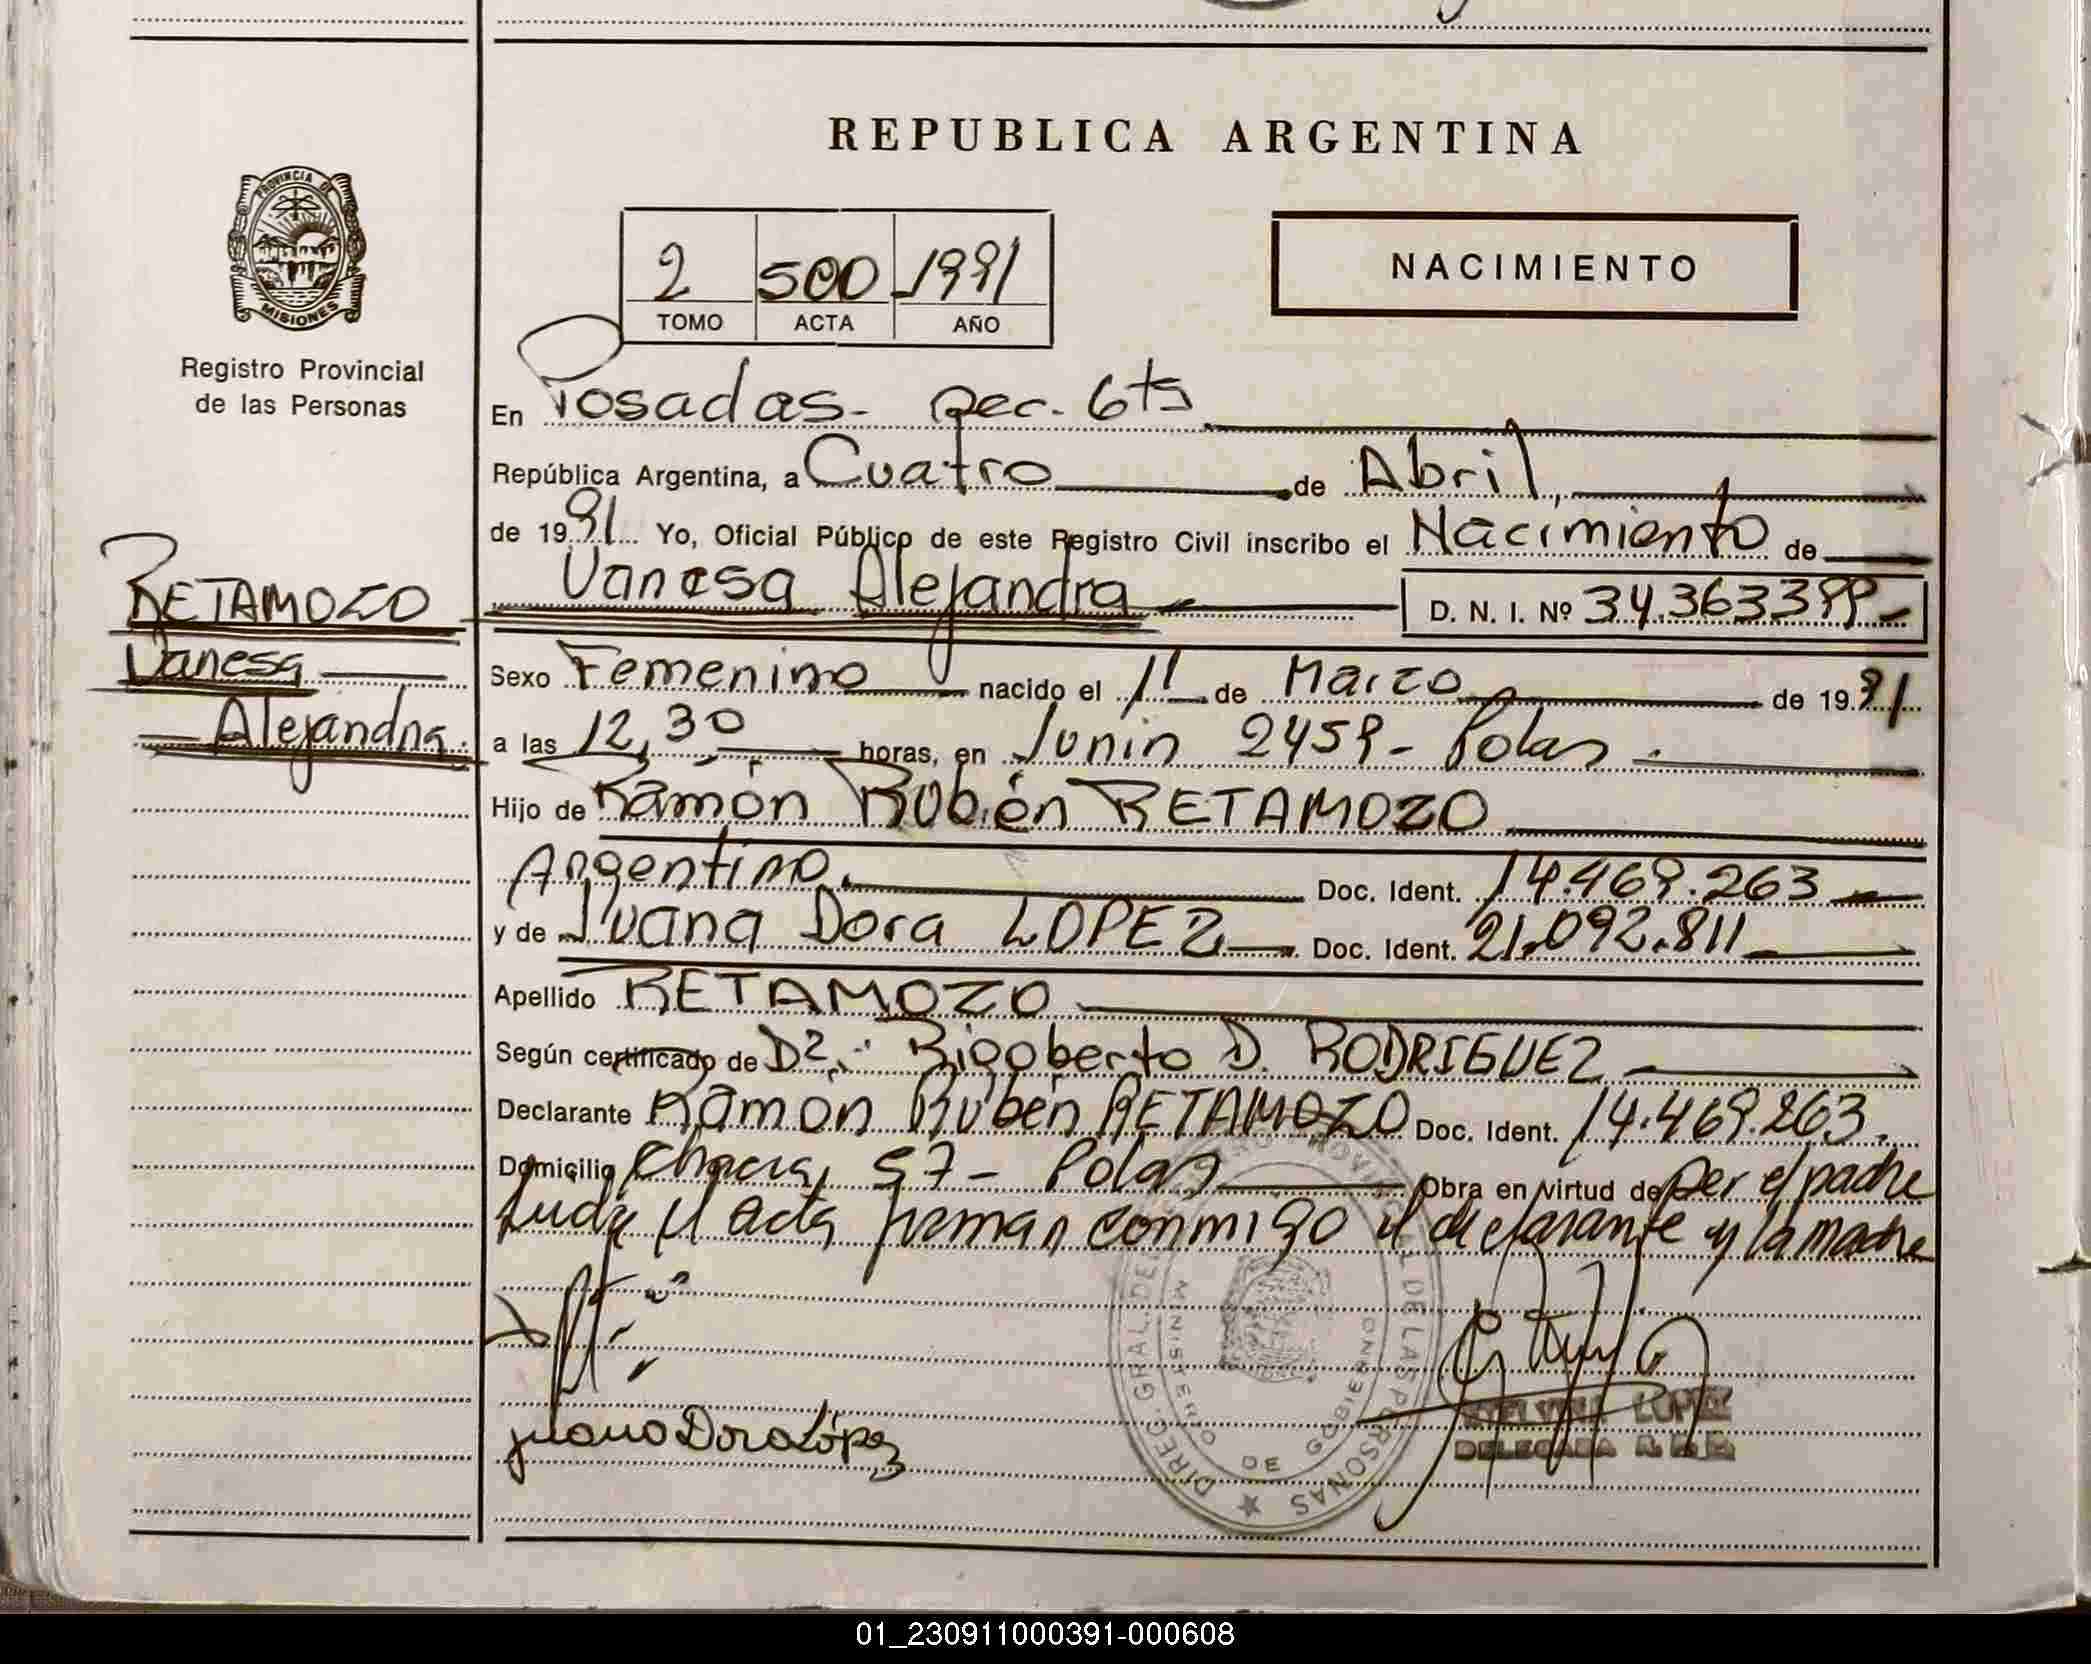 REPUBLICA ARGENTINA
PROVINCIA DE
MISIONES
Registro Provincial
de las Personas
2 500 1991
TOMO ACTA AÑO
NACIMIENTO
En Posadas - Sec. 6ta
República Argentina, a Cuatro de Abril,
de 1991 Yo, Oficial Público de este Registro Civil inscribo el Nacimiento de
RETAMOZO
Vanesa
Alejandra.
Vanesa Alejandra D. N. I. Nº 34.363399-
Sexo Femenino nacido el 11 de Marzo de 1991
a las 12,30 horas, en Junin 2459 - Pdas.
Hijo de Ramón Rubén RETAMOZO
Argentino. Doc. Ident. 14.469.263
y de Juana Dora LOPEZ Doc. Ident. 21.092.811
Apellido RETAMOZO
Según certificado de Dr. Rigoberto D. RODRIGUEZ
Declarante Ramón Rubén RETAMOZO Doc. Ident. 14.469.263.
Domicilio Chacra 57 - Pdas Obra en virtud de ser el padre
el acta firman conmigo el declarante y la madre
Juana Dora López
DIREC. GRAL. DE PERSONAS
MINISTERIO DE GOBIERNO
LOPEZ
DELEGADA
01_230911000391-000608